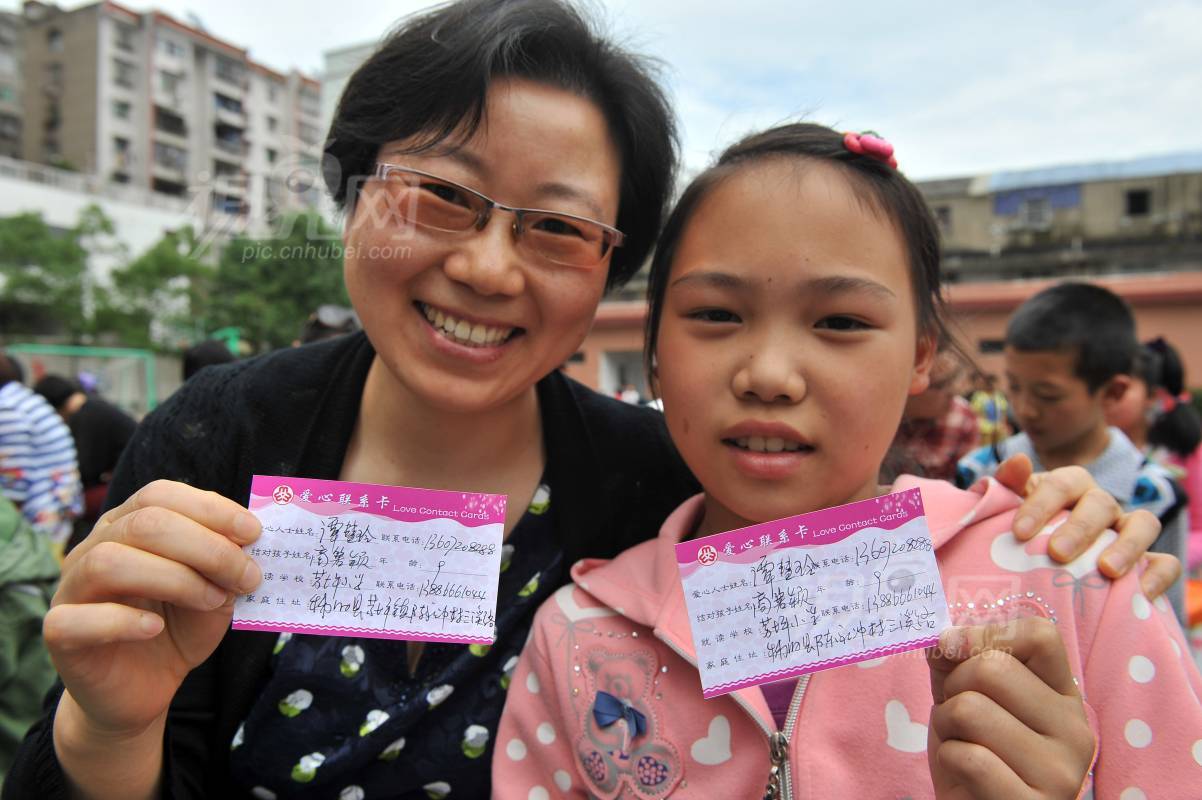 爱心联系卡 Love Contact Cards
心人士姓名: 谭慧玲 联系电话: 13607208288
结对孩子姓名 高若颖 年 龄 9
就读学校 苏坪小学 联系电话: 13886661044
家庭住址
爱心联系卡 Love Contact Cards
爱心人士姓名: 谭慧玲 联系电话: 13607208288
结对孩子姓名 高若颖 年 龄 9
就读学校 苏坪小学 联系电话: 13886661044
家庭住址:
pic.cnhubei.com
pic.cnhubei.com